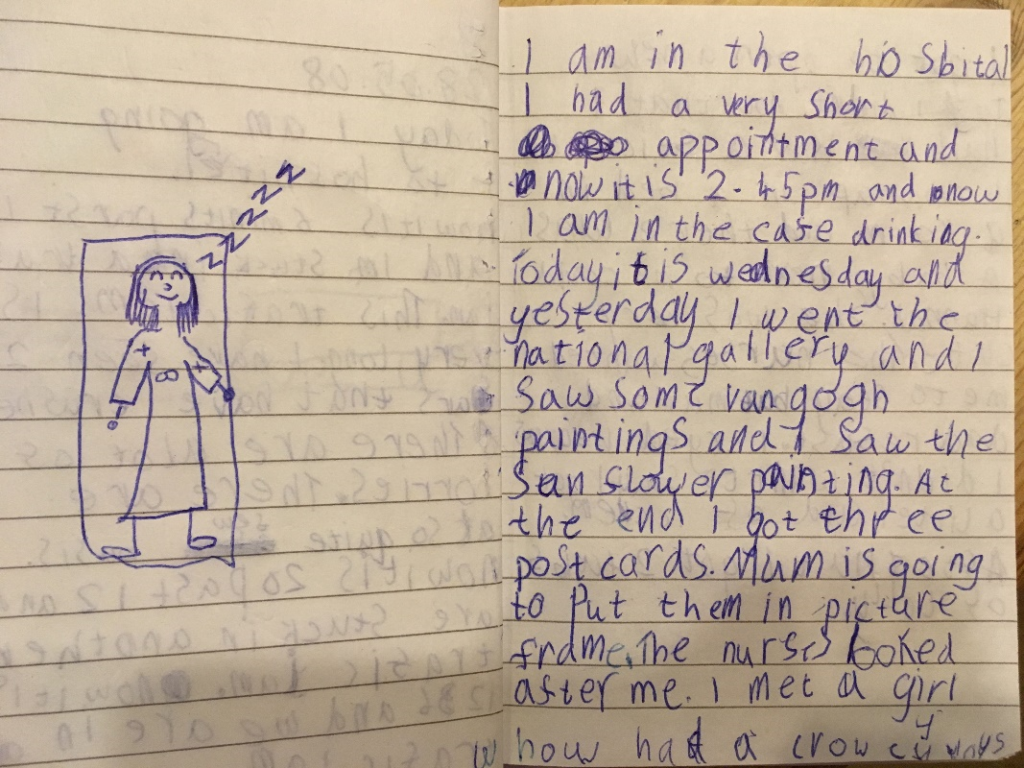 I am in the hosbital
I had a very short
appointment and
now it is 2.45pm and now
I am in the cafe drinking.
Today it is wednesday and
yesterday I went the
national gallery and I
saw some vangogh
paintings and I saw the
Sunflower painting. At
the end I got three
postcards. Mum is going
to put them in picture
frame. The nurses looked
after me. I met a girl
how had a crow